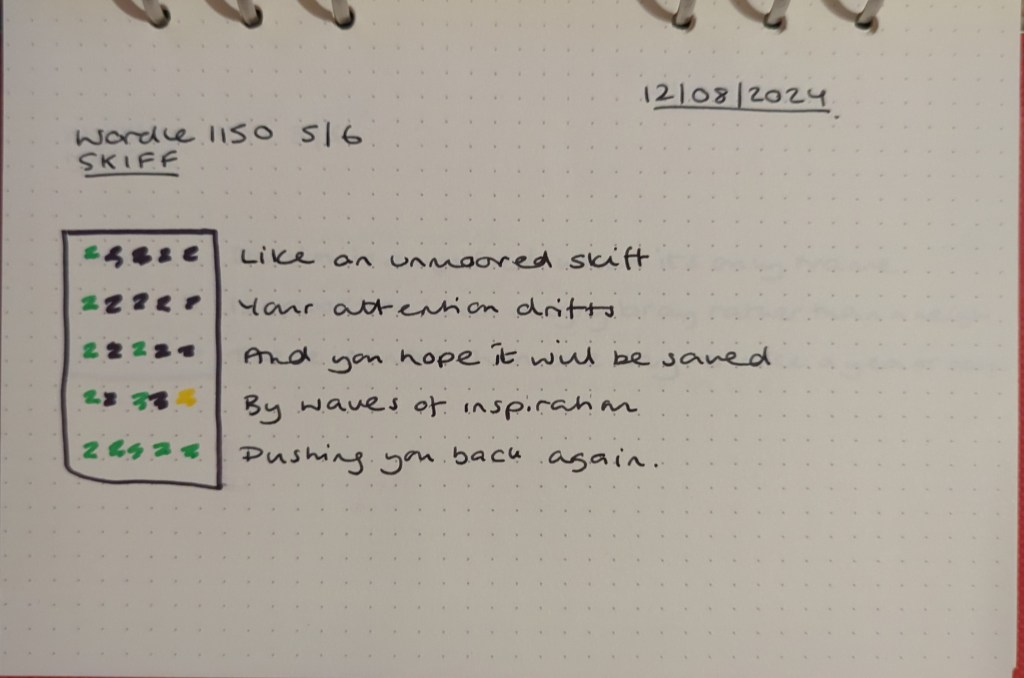 12/08/2024
Wordle 1150 5/6
SKIFF
Like an unmoored skiff
Your attention drifts
And you hope it will be saved
By waves of inspiration
Pushing you back again.